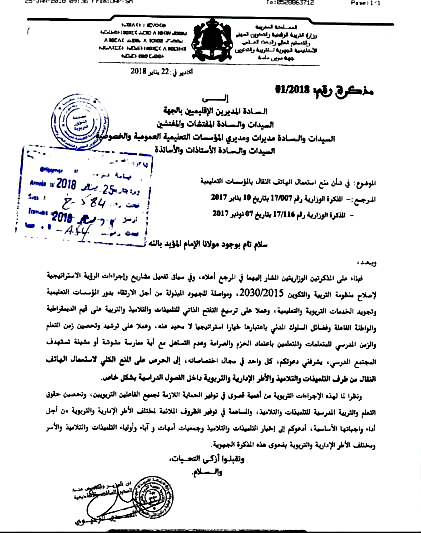 المملكة المغربية
وزارة التربية الوطنية والتكوين المهني
والتعليم العالي والبحث العلمي
الأكاديمية الجهوية للتربية والتكوين
جهة سوس ماسة
أكادير في: 22 يناير 2018
مذكرة رقم: 01/2018
إلى
السادة المديرين الإقليميين بالجهة
السيدات والسادة المفتشات والمفتشين
السيدات والسادة مديرات ومديري المؤسسات التعليمية العمومية والخصوصية
السيدات والسادة الأستاذات والأساتذة
الموضوع: في شأن منع استعمال الهاتف النقال بالمؤسسات التعليمية
المرجع: - المذكرة الوزارية رقم 17/007 بتاريخ 10 يناير 2017
- المذكرة الوزارية رقم 17/116 بتاريخ 07 نونبر 2017
سلام تام بوجود مولانا الإمام المؤيد بالله
وبعد،
فبناء على المذكرتين الوزاريتين المشار إليهما في المرجع أعلاه، وفي سياق تفعيل مشاريع وإجراءات الرؤية الاستراتيجية
لإصلاح منظومة التربية والتكوين 2030/2015، ومواصلة للمجهود المبذولة من أجل الارتقاء بدور المؤسسات التعليمية
وتجويد الخدمات التربوية والتعليمية، وعملا على ترسيخ التفتح الذاتي للتلميذات والتلاميذ والتربية على قيم الديمقراطية
والمواطنة الفاعلة وفضائل السلوك المدني باعتبارها خيارا استراتيجيا لا محيد عنه، وعملا على ترشيد وتحصين زمن التعلم
والزمن المدرسي للمتعلمات والمتعلمين باعتماد الحزم والصرامة وعدم التساهل مع أية ممارسة مشوشة أو مشينة تستهدف
المجتمع المدرسي، يشرفني دعوتكم، كل واحد في مجال اختصاصاته، إلى الحرص على المنع الكلي لاستعمال الهاتف
النقال من طرف التلميذات والتلاميذ والأطر الإدارية والتربوية داخل الفصول الدراسية بشكل خاص.
ونظرا لما لهذه الإجراءات التربوية من أهمية قصوى في توفير الحماية اللازمة لجميع الفاعلين التربويين، وتحصين حقوق
التعلم والتربية المدرسية للتلميذات والتلاميذ، والمساهمة في توفير الظروف الملائمة لمختلف الأطر الإدارية والتربوية من أجل
أداء واجباتها الأساسية، أدعوكم إلى إخبار التلميذات والتلاميذ وجمعيات أمهات و آباء وأولياء التلميذات والتلاميذ والأسر
ومختلف الأطر الإدارية والتربوية بفحوى هذه المذكرة الجهوية.
وتقبلوا أزكى التحيات،
والسلام.